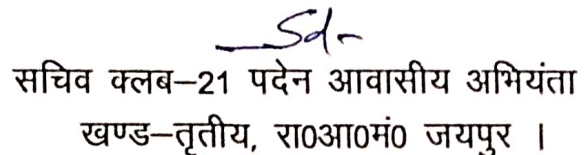 Sd-
सचिव क्लब–21 पदेन आवासीय अभियंता
खण्ड–तृतीय, रा0आ0मं0 जयपुर ।